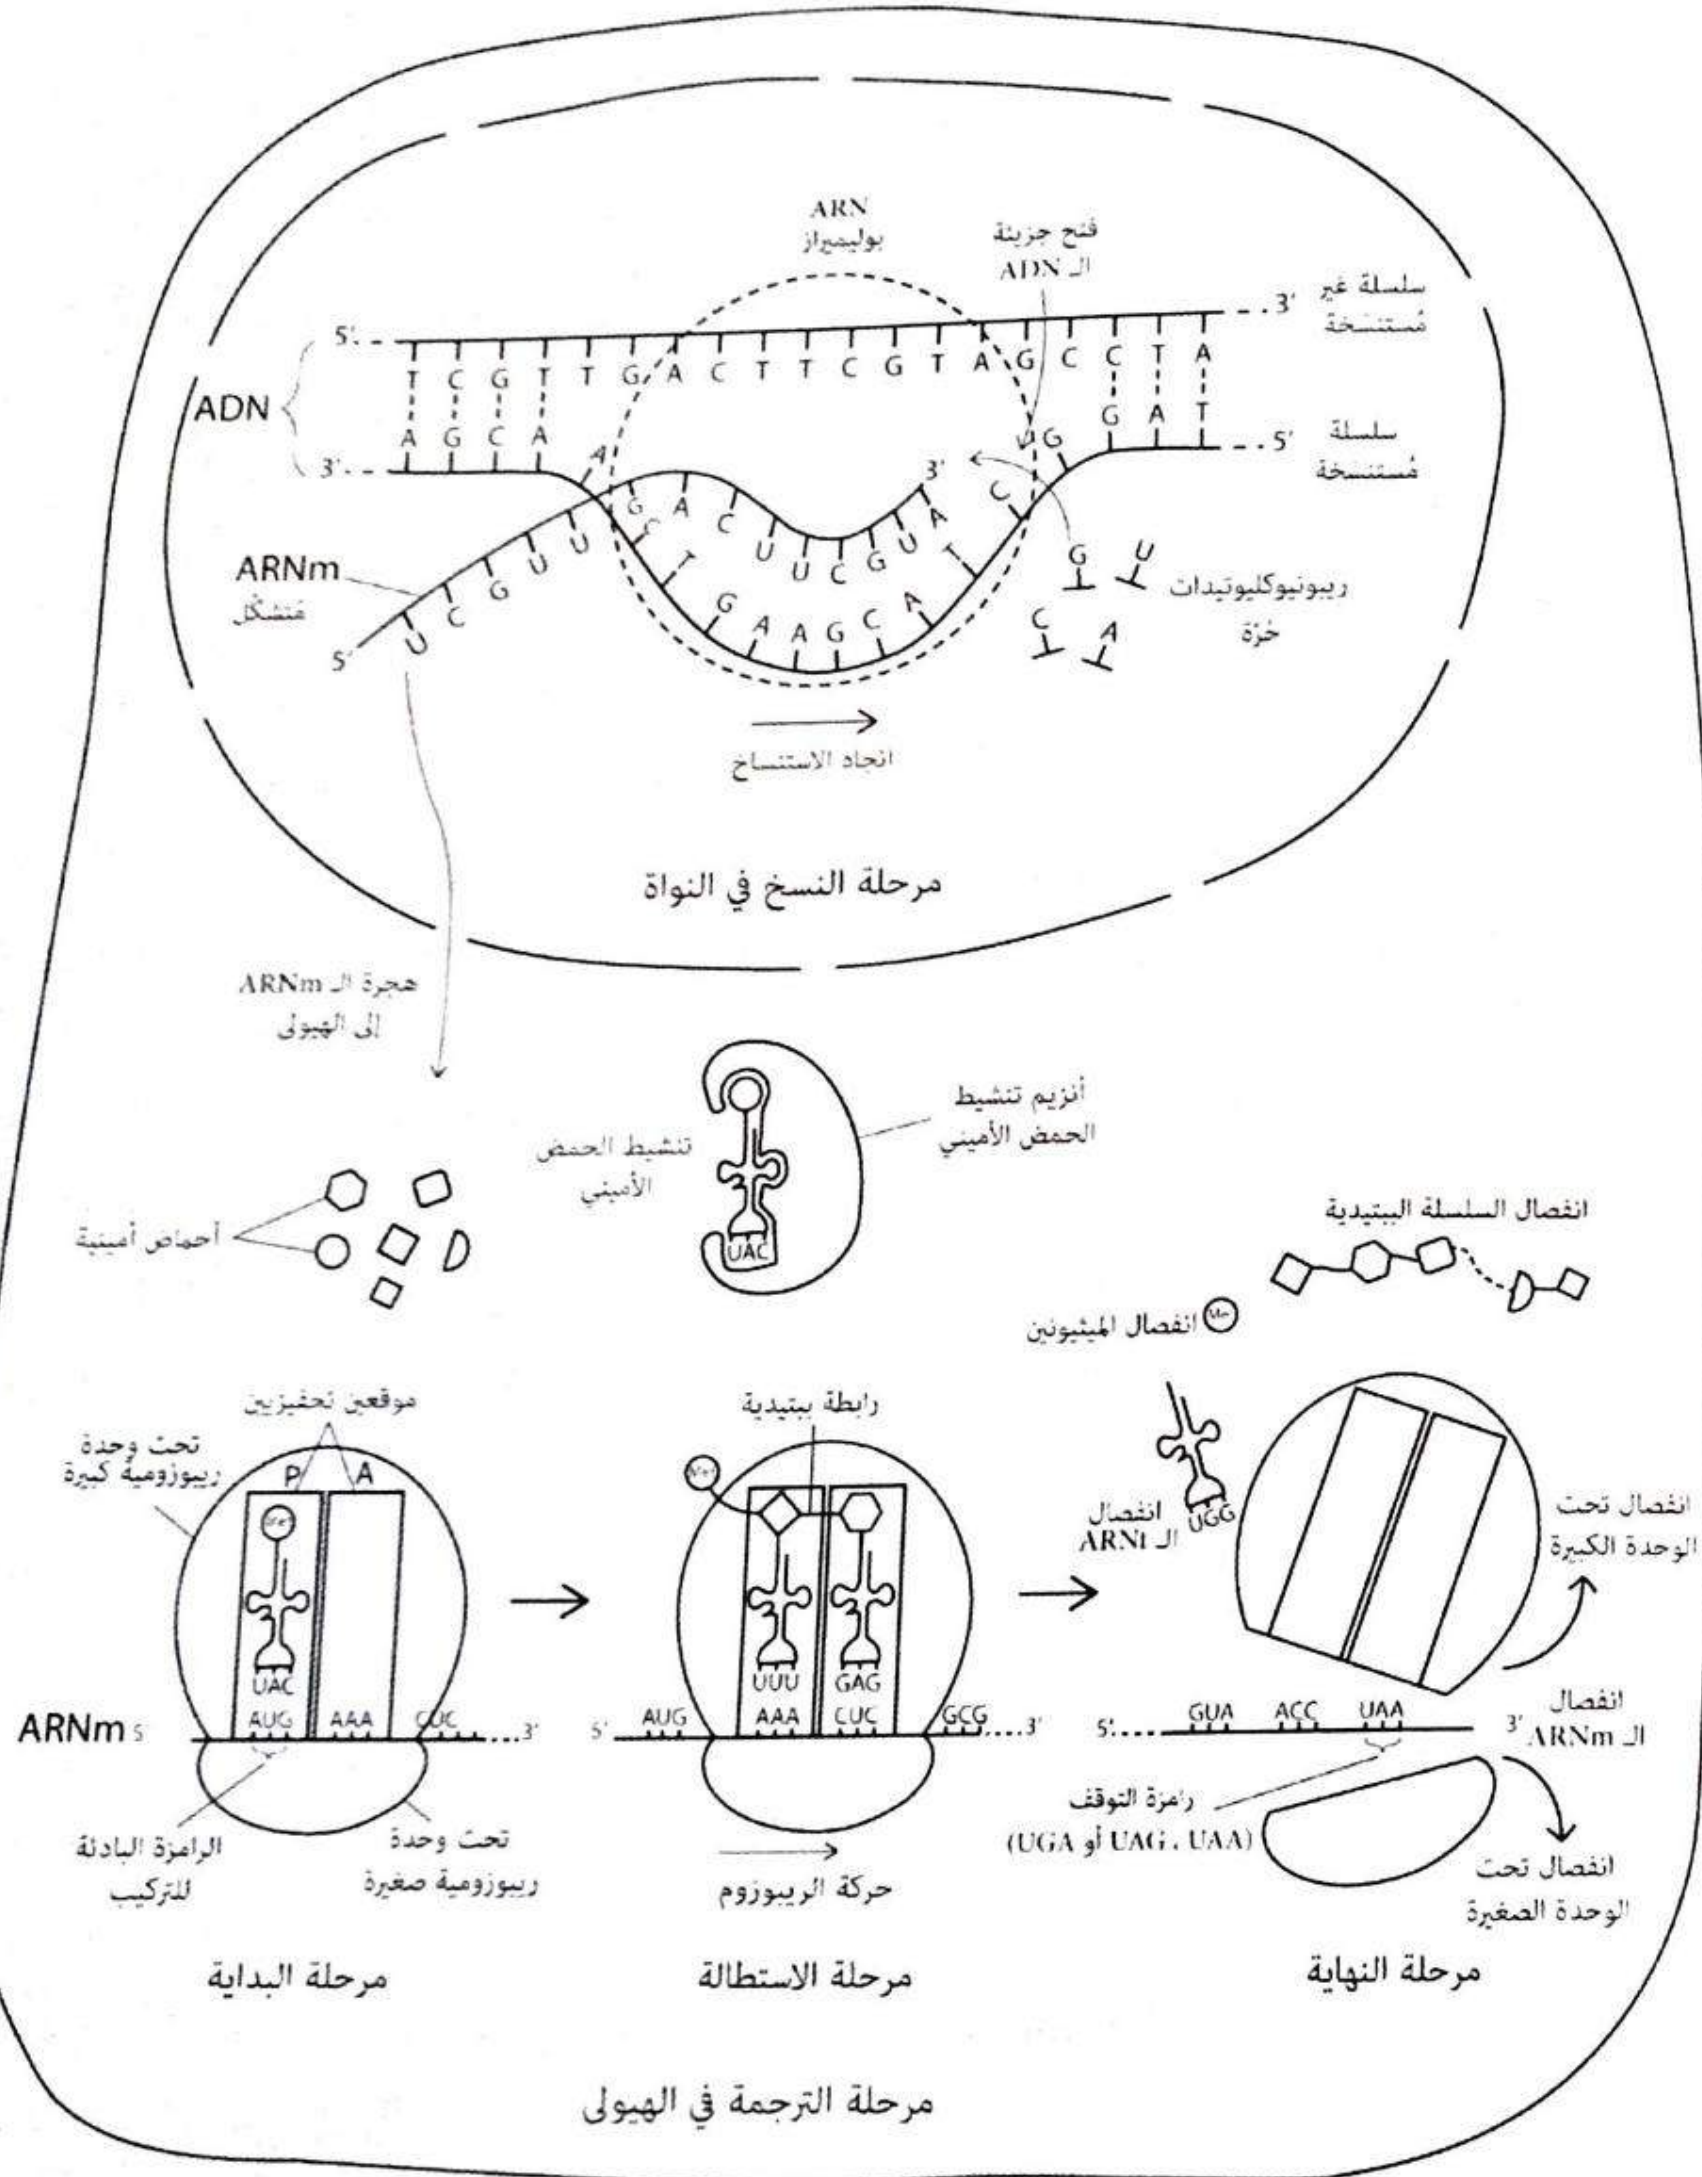 ARN
بوليميراز
فتح جزيئة
الـ ADN
سلسلة غير
مُستنسخة
5' 3'
T C G T T G A C T T C G T A G C C T A
ADN
A G C A A C T G A A G C A T C G G A T
3' 5'
سلسلة
مُستنسخة
3'
U C G U U G A C U U C G U A
5'
ARNm
مُتشكّل
G U
C A
ريبونيوكليوتيدات
حُرّة
اتجاه الاستنساخ
مرحلة النسخ في النواة
هجرة الـ ARNm
إلى الهيولى
أنزيم تنشيط
الحمض الأميني
تنشيط الحمض
الأميني
UAC
أحماض أمينية
انفصال السلسلة الببتيدية
انفصال الميثيونين
Met
موقعين تحفيزيين
تحت وحدة
ريبوزومية كبيرة
P A
Met
UAC
AUG AAA CUC
ARNm 5' 3'
الرامزة البادئة
للتركيب
تحت وحدة
ريبوزومية صغيرة
مرحلة البداية
رابطة ببتيدية
Met
UUU GAG
5' AUG AAA CUC GCG 3'
حركة الريبوزوم
مرحلة الاستطالة
انفصال
الـ ARNt
UGG
انفصال تحت
الوحدة الكبيرة
5' GUA ACC UAA 3'
انفصال
الـ ARNm
رامزة التوقف
(UAA ، UAG أو UGA)
انفصال تحت
الوحدة الصغيرة
مرحلة النهاية
مرحلة الترجمة في الهيولى